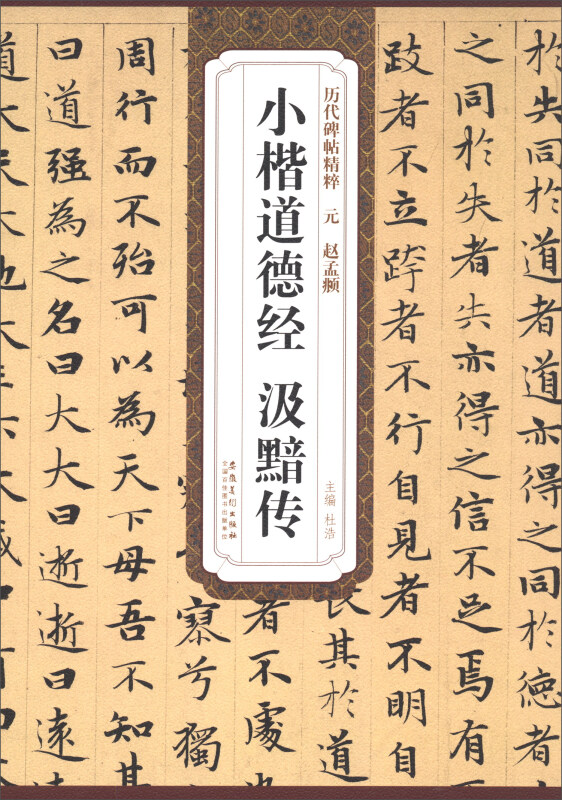 於失同於道者道亦得之同於德者
之同於失者失亦得之信不足焉有
跂者不立跨者不行自見者不明自
長其於道
者不處
寂兮獨
周行而不殆可以為天下母吾不知其
曰道强為之名曰大大曰逝逝曰遠
道大天大地大
历代碑帖精粹 元 赵孟頫
小楷道德经 汲黯传
主编 杜浩
安徽美术出版社
全国百佳图书出版单位